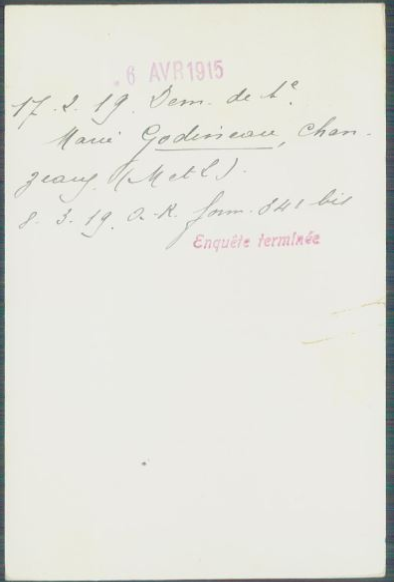 6 AVR 1915
17.2.19. Dem. de tᵉ.
Marie Godineau, Chan-
zeaux (M et L).
8.3.19. O.K. form. 841 bis
Enquête terminée